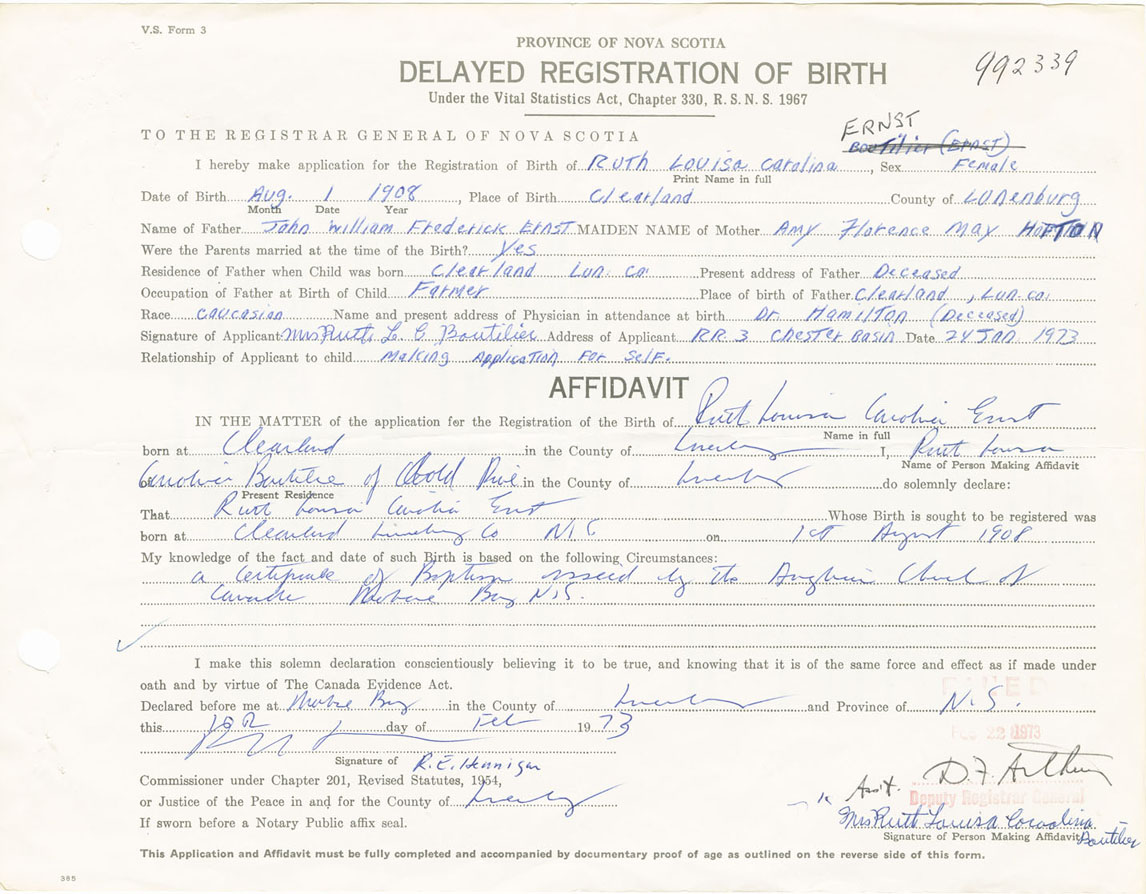 V.S. Form 3
PROVINCE OF NOVA SCOTIA
992339
DELAYED REGISTRATION OF BIRTH
Under the Vital Statistics Act, Chapter 330, R.S.N.S. 1967
TO THE REGISTRAR GENERAL OF NOVA SCOTIA
ERNST
Boutilier (ERNST)
I hereby make application for the Registration of Birth of RUTH LOUISA CAROLINA, Sex Female
Print Name in full
Date of Birth Aug. 1 1908, Place of Birth Clearland County of LUNENBURG
Month Date Year
Name of Father John William Frederick ERNST MAIDEN NAME of Mother Amy Florence May
Were the Parents married at the time of the Birth? Yes
Residence of Father when Child was born Clearland Lun. co. Present address of Father Deceased
Occupation of Father at Birth of Child Farmer Place of birth of Father Clearland, Lun. co.
Race caucasian Name and present address of Physician in attendance at birth Dr HAMILTON (Deceased)
Signature of Applicant Mrs Ruth L. C Boutilier Address of Applicant R.R. 3 CHESTER BASIN Date 24 JAN 1973
Relationship of Applicant to child Making Application For Self.
AFFIDAVIT
IN THE MATTER of the application for the Registration of the Birth of Ruth Louisa Carolina Ernst
Name in full
born at Clearland in the County of Lunenburg I, Ruth Louisa
Name of Person Making Affidavit
of Carolina Boutilier of Gold River in the County of Lunenburg do solemnly declare:
Present Residence
That Ruth Louisa Carolina Ernst Whose Birth is sought to be registered was
born at Clearland Lunenburg Co N.S. on 1st August 1908
My knowledge of the fact and date of such Birth is based on the following Circumstances:
a Certificate of Baptism issued by the Anglican Church of
Canada Mahone Bay N.S.
I make this solemn declaration conscientiously believing it to be true, and knowing that it is of the same force and effect as if made under
oath and by virtue of The Canada Evidence Act.
Declared before me at Mahone Bay in the County of Lunenburg and Province of N.S.
this day of Feb 1973
FEB 22 1973
Signature of R.E. Hennigar
Commissioner under Chapter 201, Revised Statutes, 1954,
Ass't. D.F. Arthur
or Justice of the Peace in and for the County of Lunenburg
Deputy Registrar General
If sworn before a Notary Public affix seal.
Mrs Ruth Louisa Carolina Boutilier
Signature of Person Making Affidavit
This Application and Affidavit must be fully completed and accompanied by documentary proof of age as outlined on the reverse side of this form.
385